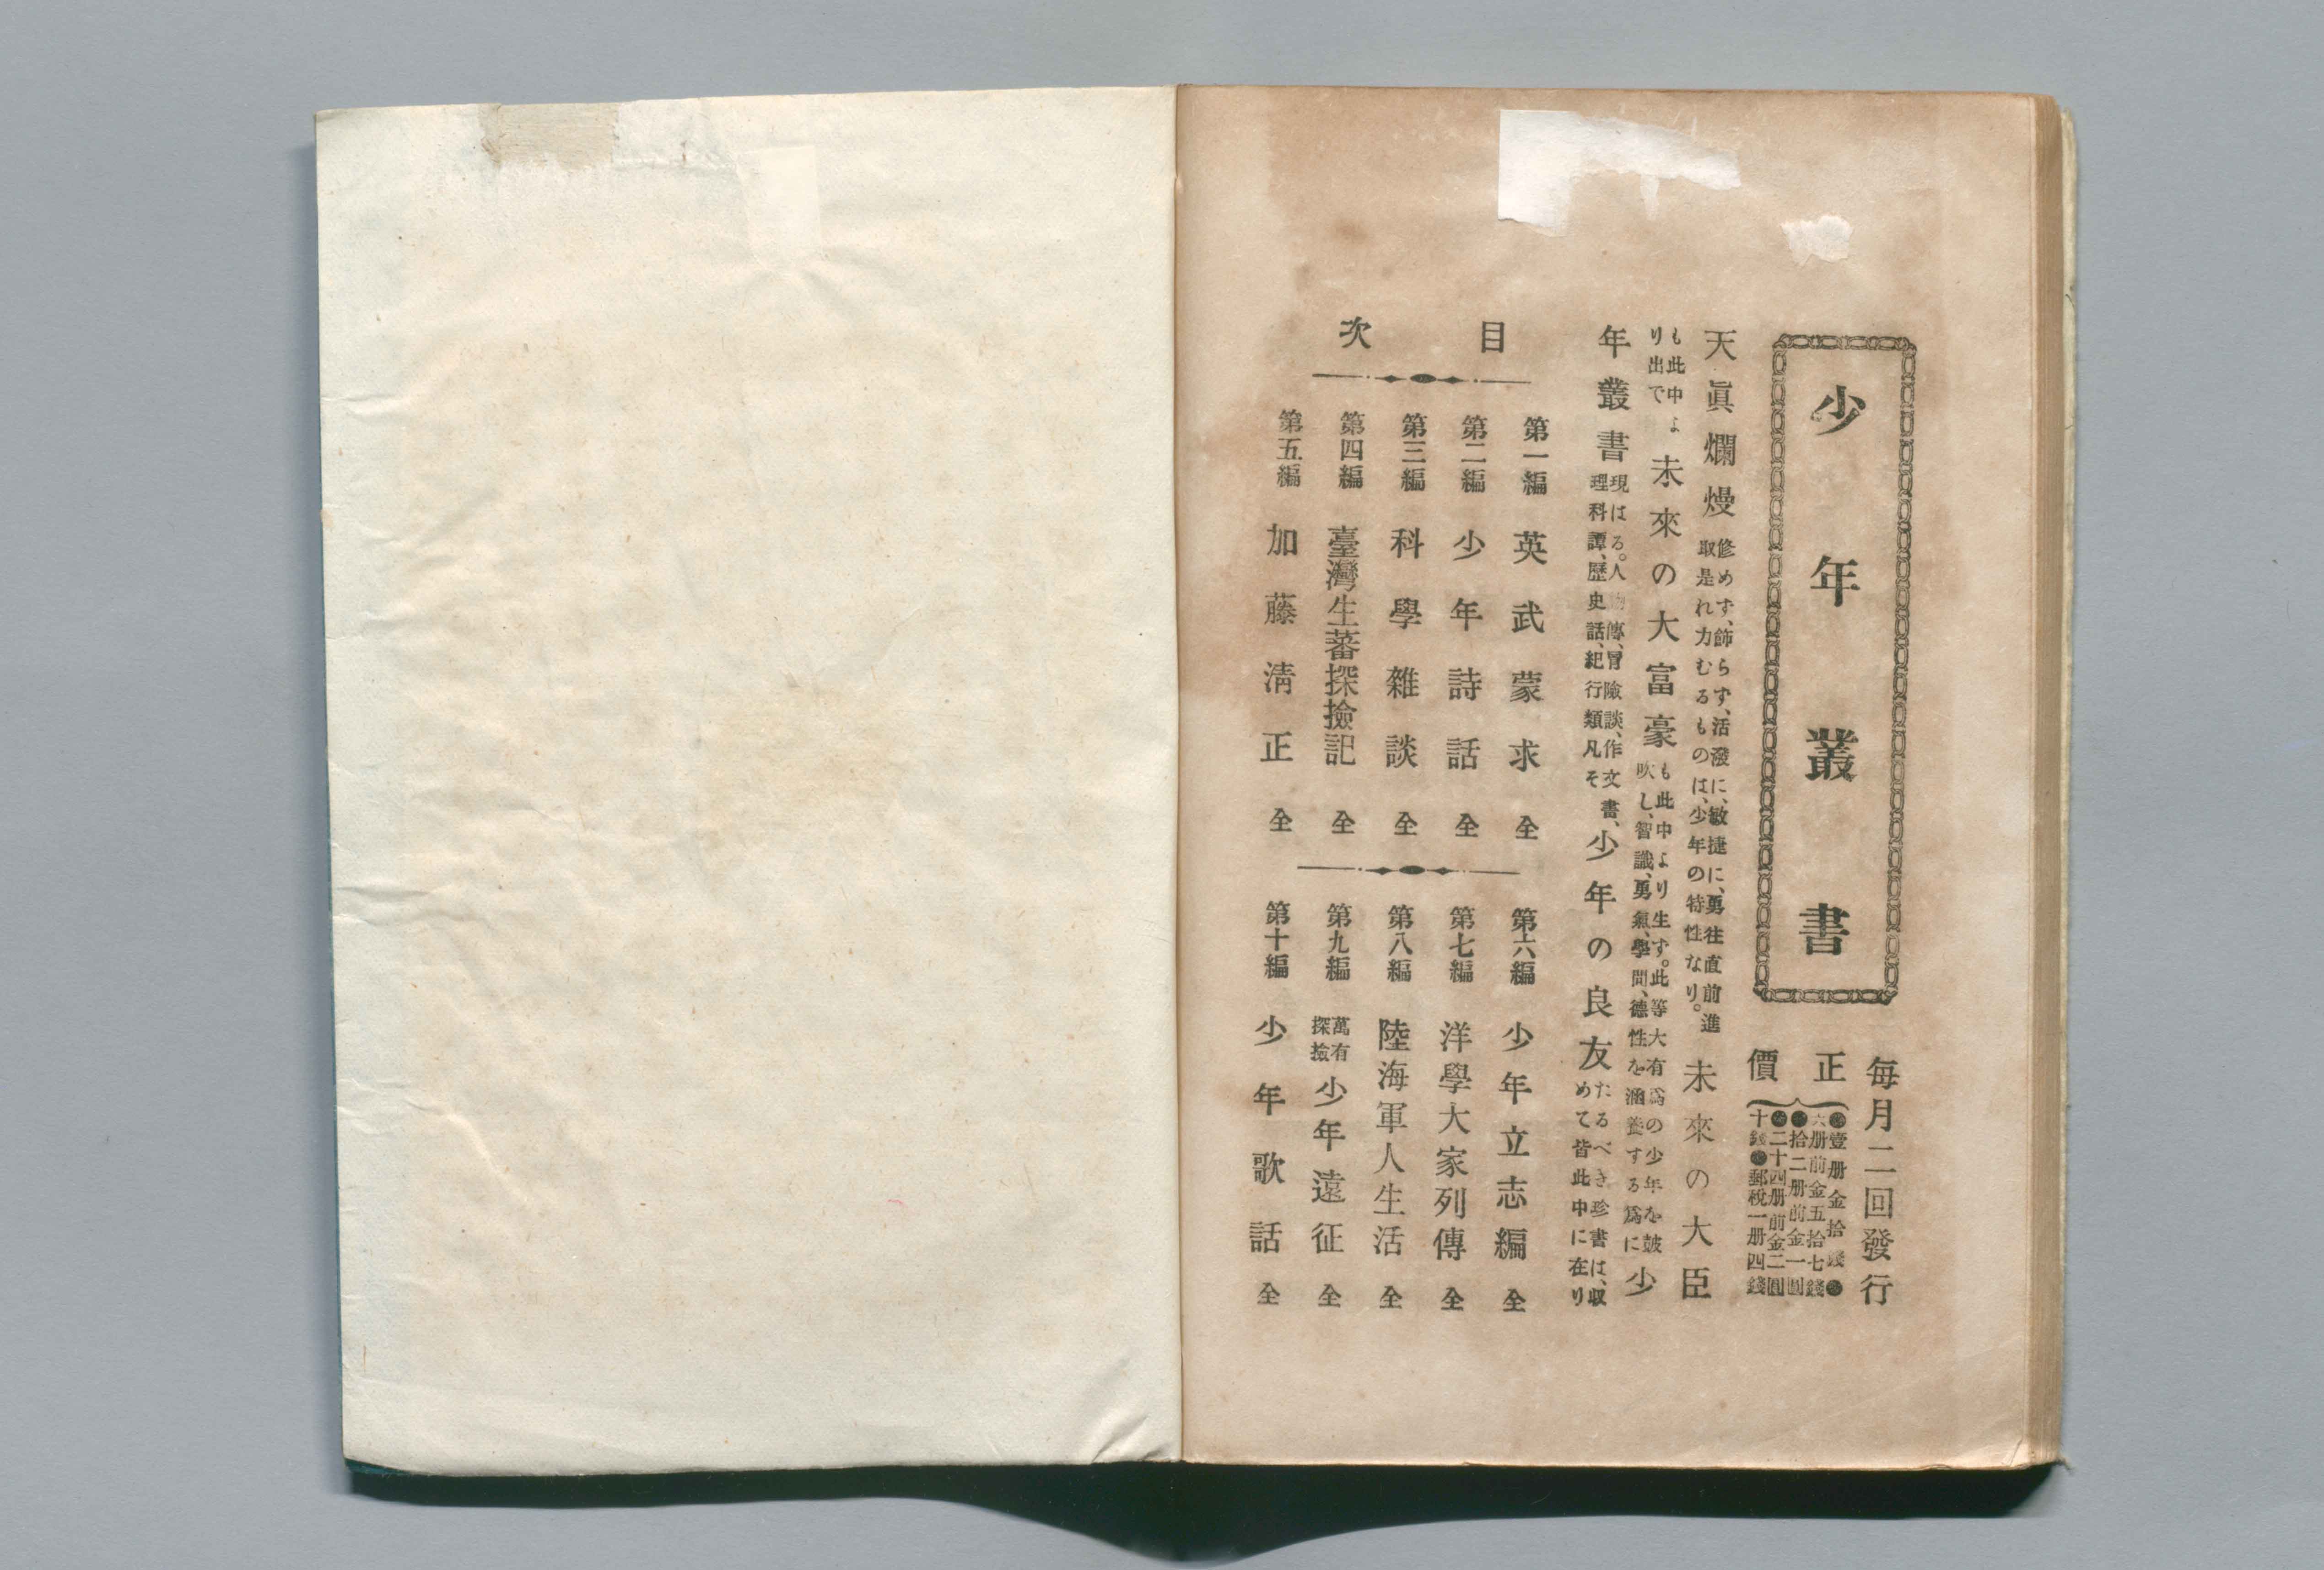 少年叢書
毎月二回發行
正價
壹册金拾錢
六册前金五拾七錢
拾二册前金一圓
二十四册前金二圓
十錢●郵税一册四錢
天眞爛熳
修めず、飾らず、活潑に、敏捷に、勇往直前進
取是れ力むるものは、少年の特性なり。
未來の大臣
も此中よ
り出で
未來の大富豪
も此中より生ず。此等大有爲の少年を皷
吹し、智識、勇氣、學問、德性を涵養する爲に
少年叢書
現はる。人物傳、冒險談、作文書、
理科譚、歷史話、紀行類凡そ
少年の良友
たるべき珍書は、収
めて皆此中に在り
目次
第一編 英武蒙求 全
第二編 少年詩話 全
第三編 科學雜談 全
第四編 臺灣生蕃探撿記 全
第五編 加藤淸正 全
第六編 少年立志編 全
第七編 洋學大家列傳 全
第八編 陸海軍人生活 全
第九編 萬有探撿 少年遠征 全
第十編 少年歌話 全